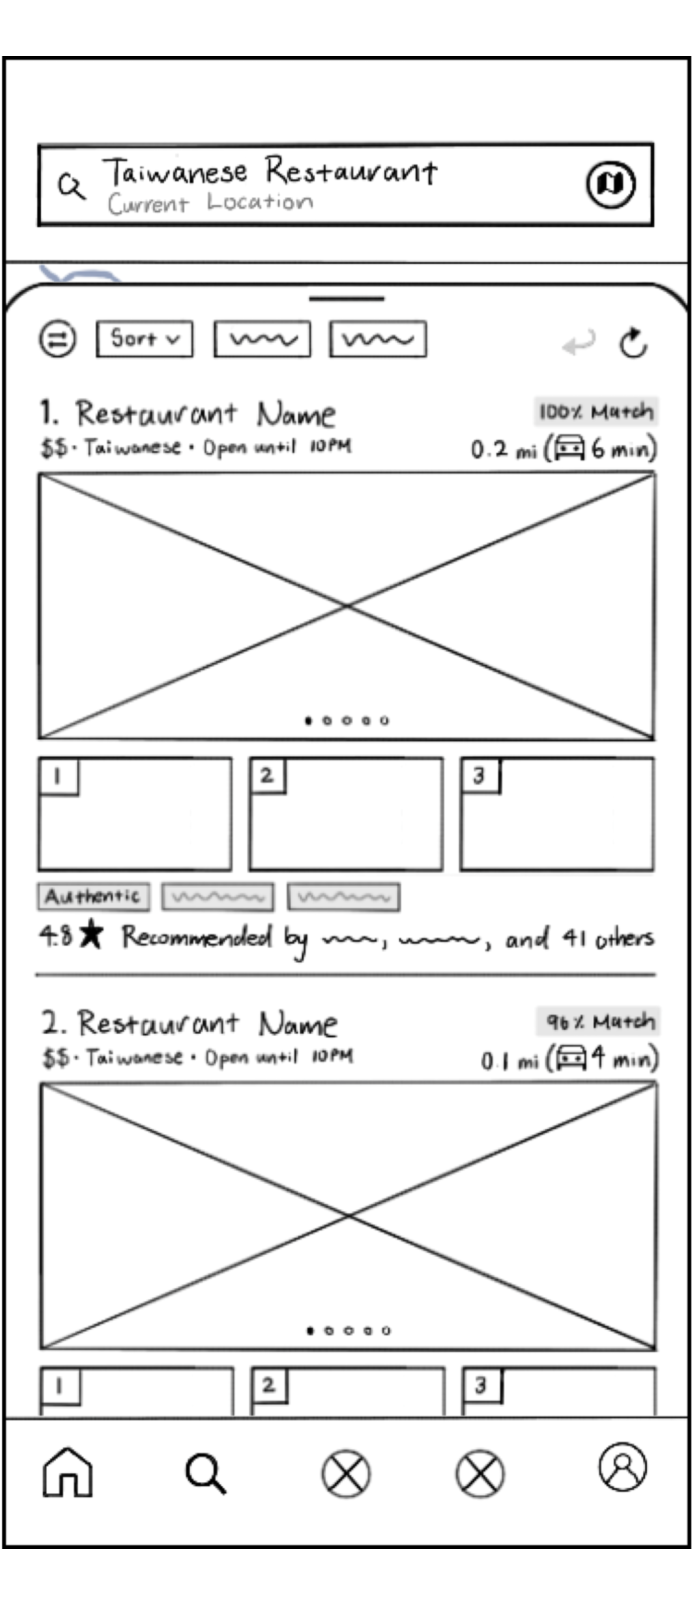 Taiwanese Restaurant
Current Location
Sort
1. Restaurant Name
100% Match
$$ · Taiwanese · Open until 10PM
0.2 mi (6 min)
1
2
3
Authentic
4.8 ★ Recommended by , , and 41 others
2. Restaurant Name
96% Match
$$ · Taiwanese · Open until 10PM
0.1 mi (4 min)
1
2
3